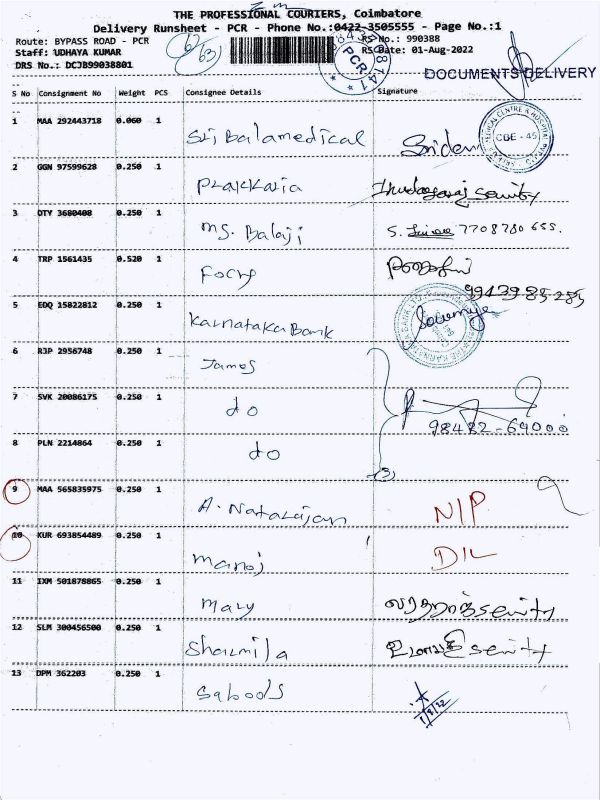 THE PROFESSIONAL COURIERS, Coimbatore
Delivery Runsheet - PCR - Phone No.:0422-3505555 - Page No.:1
Route: BYPASS ROAD - PCR
RS No.: 990388
Staff: UDHAYA KUMAR
RS Date: 01-Aug-2022
DRS No.: DCJB99038801
DOCUMENTS DELIVERY
PCR
S No Consignment No Weight PCS Consignee Details Signature
1 MAA 292443718 0.060 1 Sri Balamedical
CBE - 45
2 GGN 97599628 0.250 1 Prakkaria
3 DTY 3680408 0.250 1 MS. Balaji S. 7708780 655.
4 TRP 1561435 0.520 1
9943985285
5 EDQ 15822812 0.250 1 Karnataka Bank Sowmiya
6 RJP 2956748 0.250 1 James
7 SVK 20086175 0.250 1 do
98422-69000
8 PLN 2214864 0.250 1 do
(3)
9 MAA 565835975 0.250 1 A. Natarajan N/P
10 KUR 693854489 0.250 1 Manoj D/L
11 IXM 501878865 0.250 1 Mary
12 SLM 300456500 0.250 1 Sharmila
13 DPM 362203 0.250 1 Saboods
1/8/22